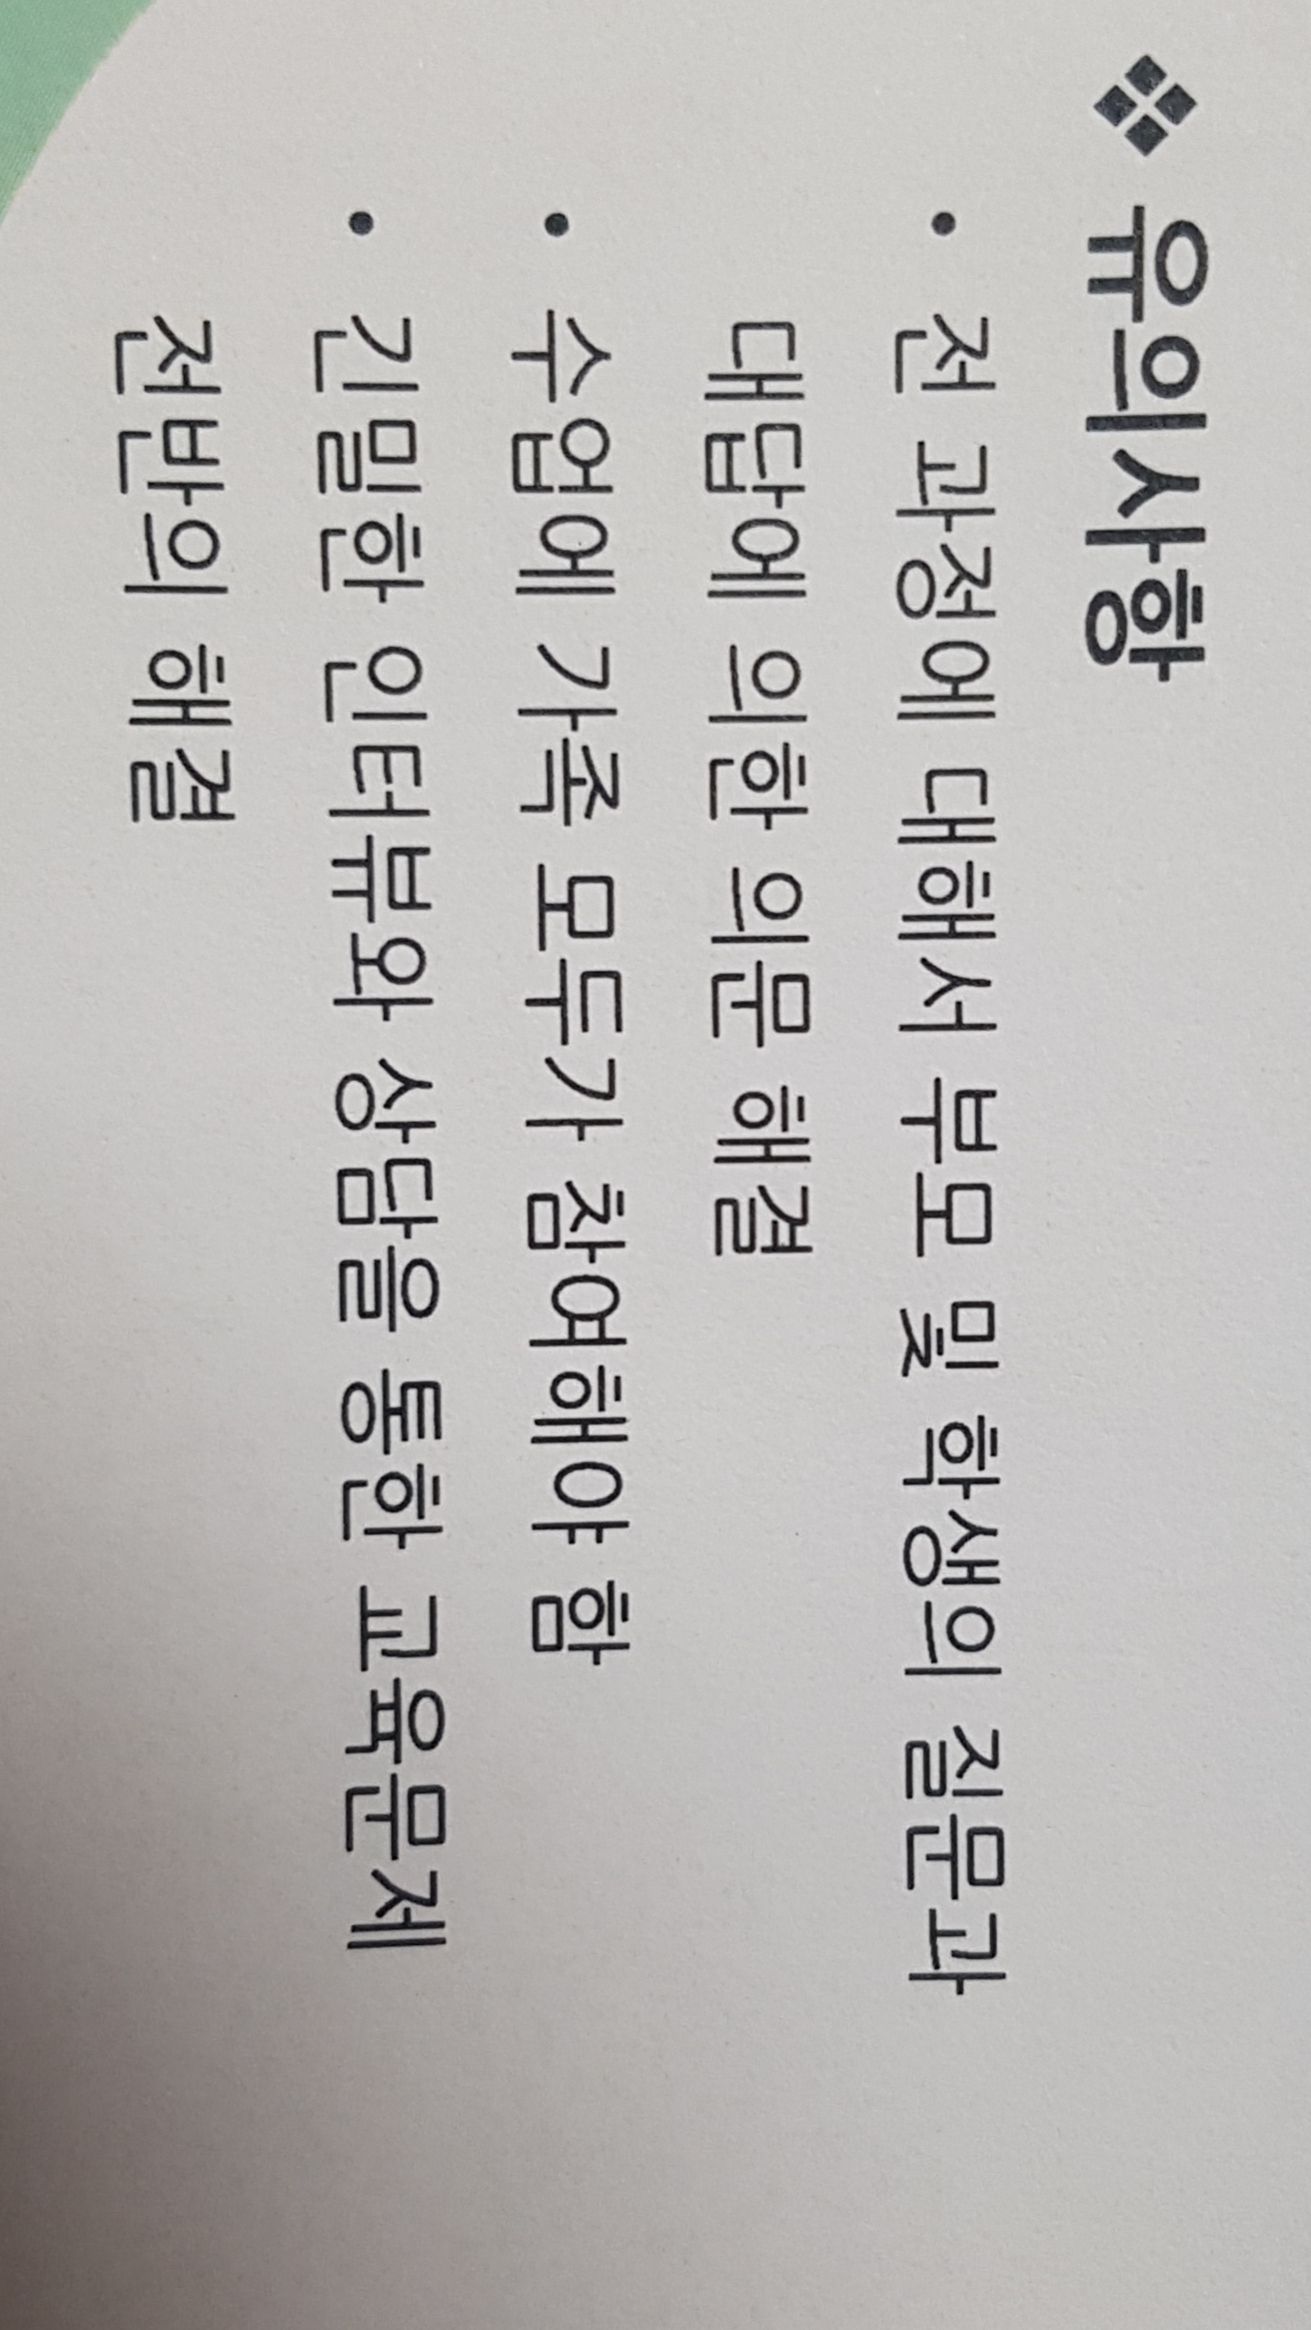 ❖ 유의사항
• 전 과정에 대해서 부모 및 학생의 질문과
대답에 의한 의문 해결
• 수업에 가족 모두가 참여해야 함
• 긴밀한 인터뷰와 상담을 통한 교육문제
전반의 해결